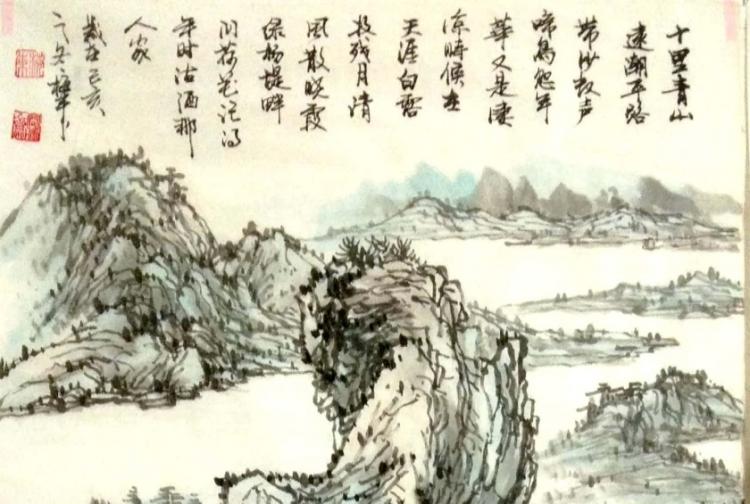 十里青山
遠潮平路
帶沙数声
啼鳥怨年
華又是凄
涼時候在
天涯白露
收残月清
風散曉霞
绿杨堤畔
问荷花记得
年时沽酒那
人家
歲在己亥